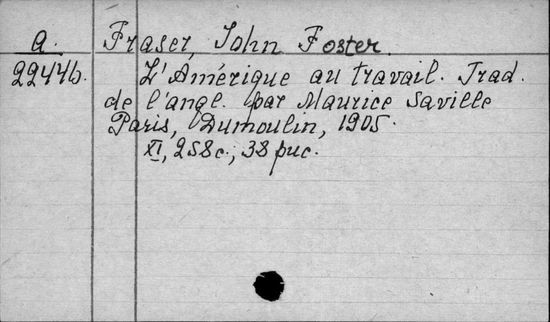 a. Fraser, John Foster
22446. L'Amérique au travail. Trad.
de l'angl. par Maurice Saville
Paris, Dumoulin, 1905.
XI, 258c., 38 рис.